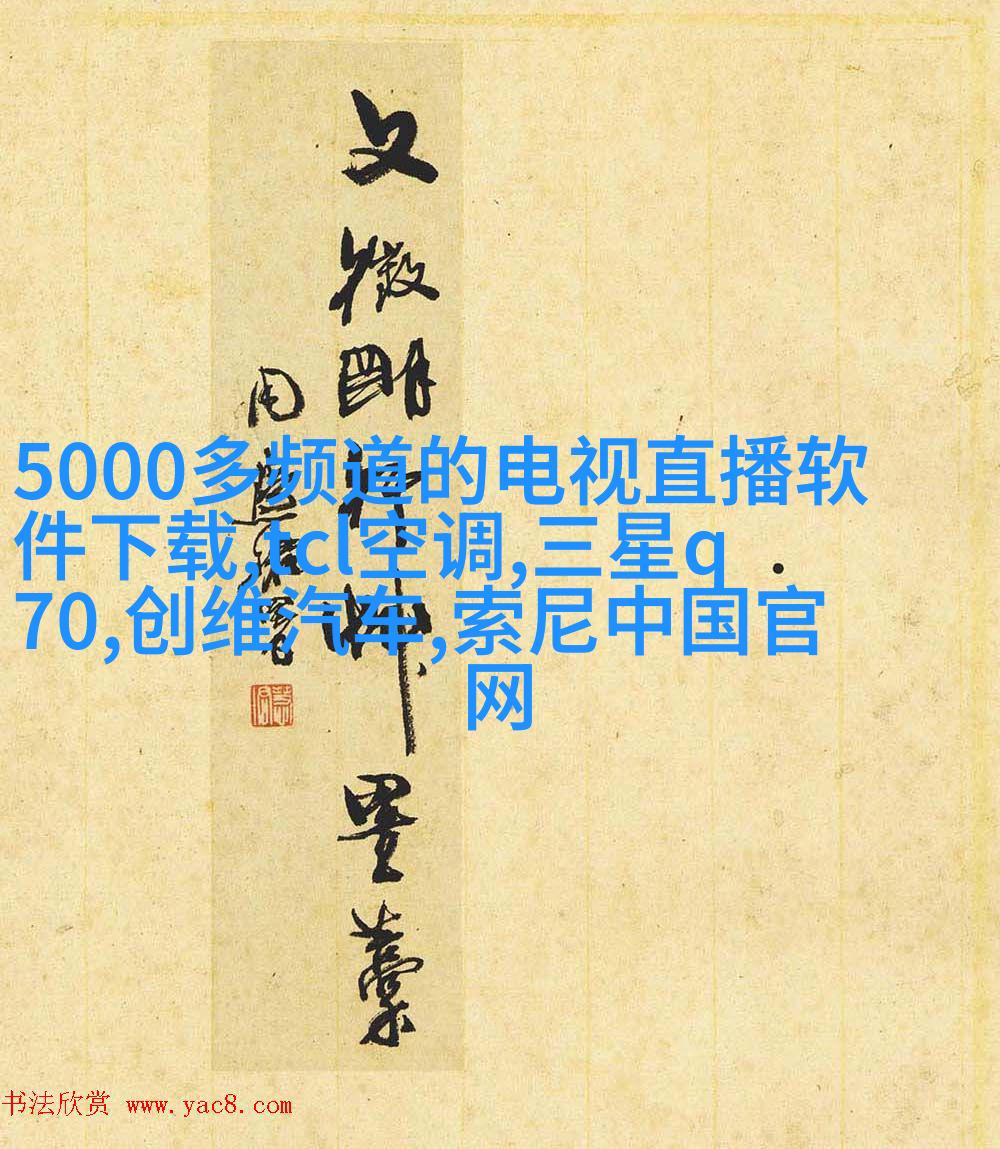 文徵明詩冊墨藁
5000多频道的电视直播软
件下载,tcl空调,三星q
70,创维汽车,索尼中国官
网
书法欣赏 www.yac8.com